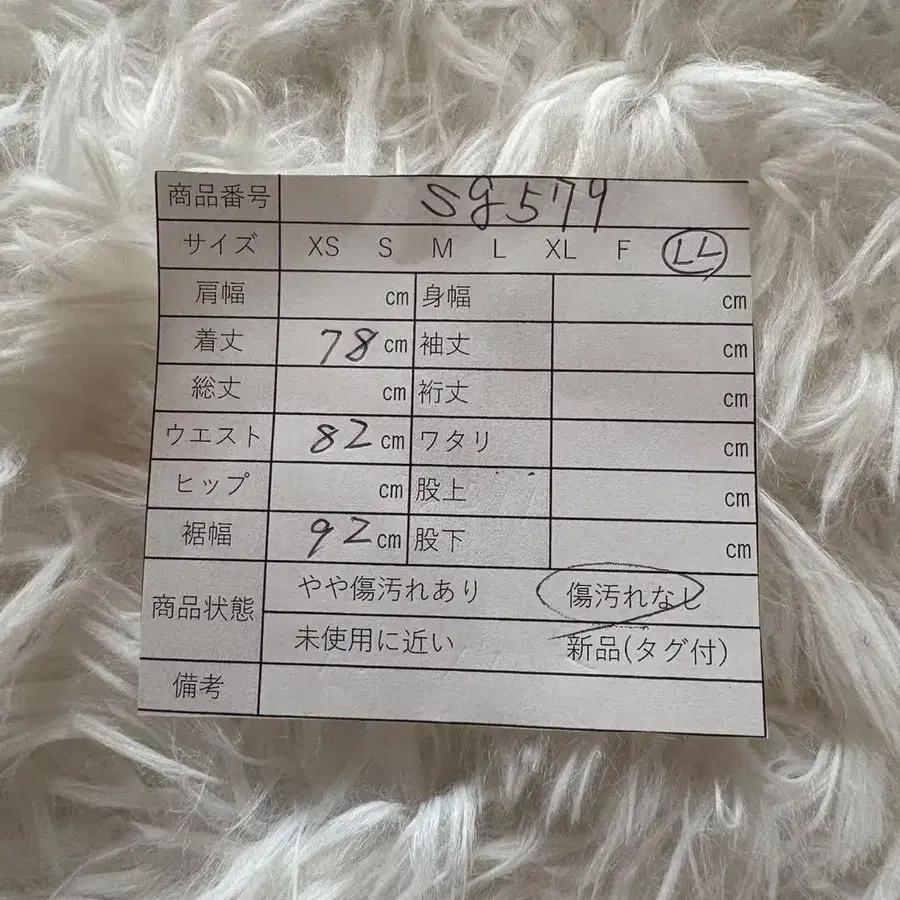 商品番号 sg579
サイズ XS S M L XL F LL
肩幅 cm 身幅 cm
着丈 78 cm 袖丈 cm
総丈 cm 裄丈 cm
ウエスト 82 cm ワタリ cm
ヒップ cm 股上 cm
裾幅 92 cm 股下 cm
商品状態 やや傷汚れあり 傷汚れなし
未使用に近い 新品(タグ付)
備考